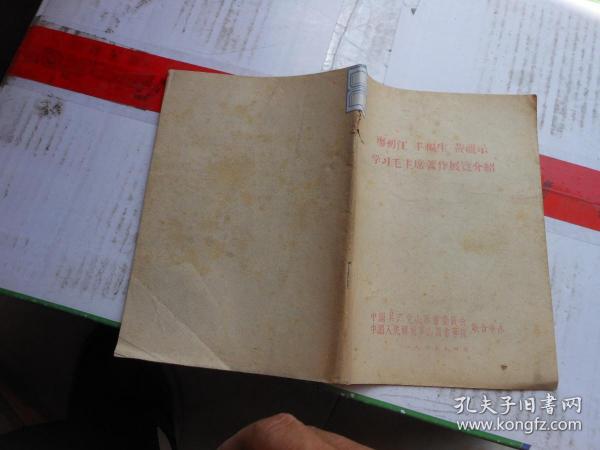 廖初江 丰福生 黄祖示
学习毛主席著作展览介绍
中国共产党山西省委员会
中国人民解放军山西省军区 联合举办
孔夫子旧书网
www.kongfz.com